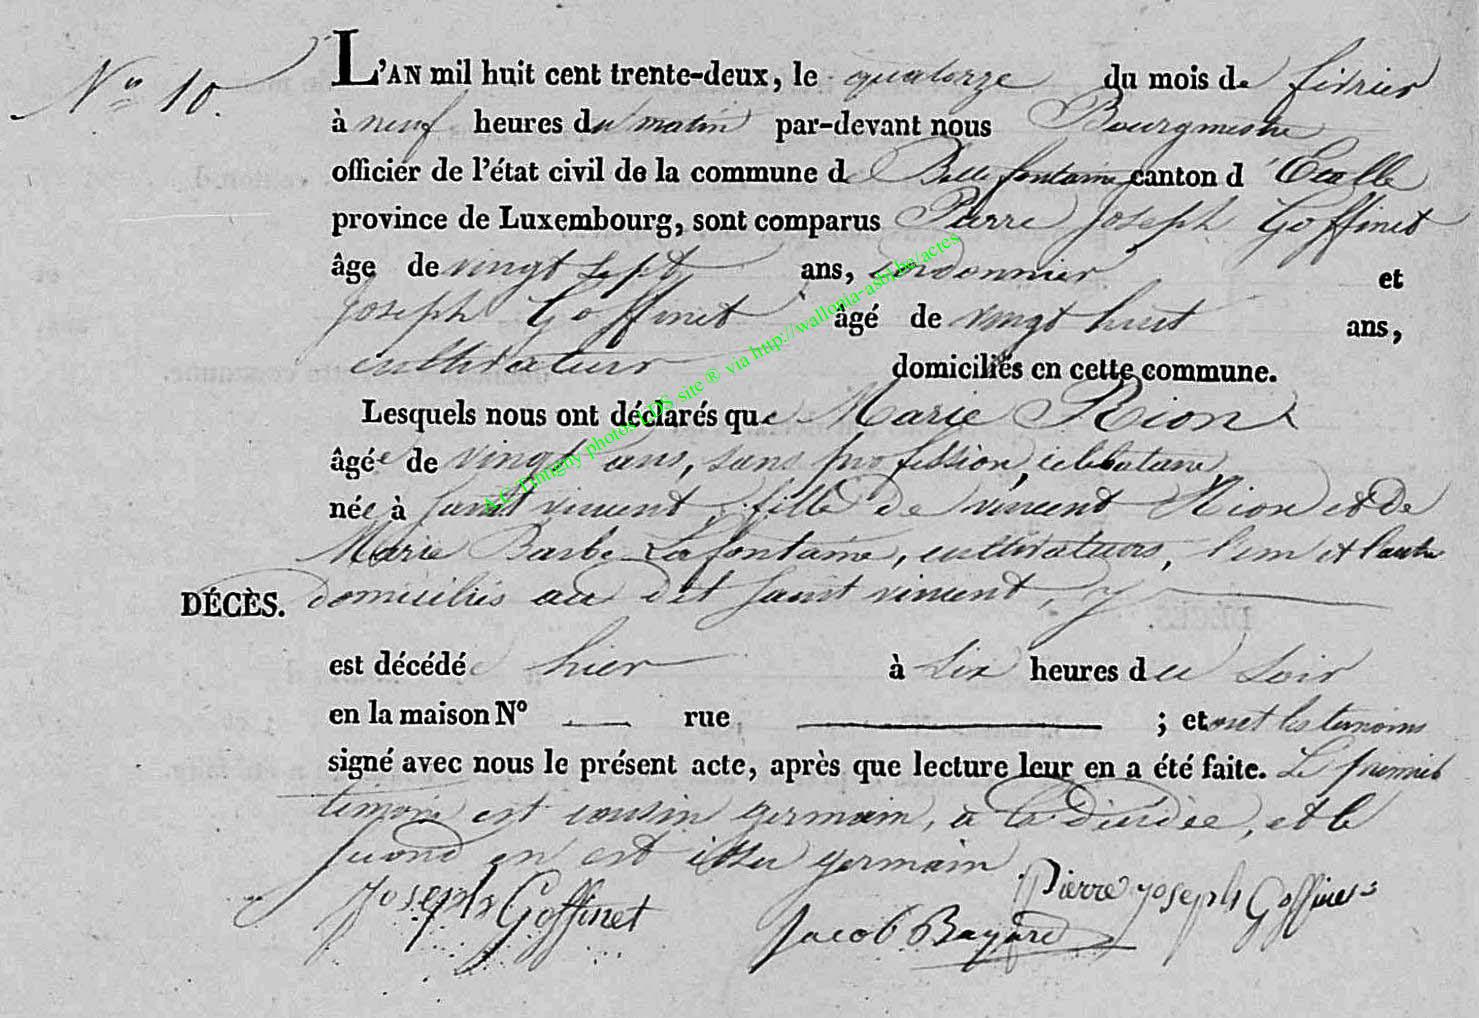 N° 10.
L'AN mil huit cent trente-deux, le quatorze du mois de février
à neuf heures du matin par-devant nous Bourgmestre
officier de l'état civil de la commune de Bellefontaine canton d'Etalle
province de Luxembourg, sont comparus Pierre Joseph Goffinet
âge de vingt sept ans, cordonnier et
Joseph Goffinet âgé de vingt huit ans,
cultivateur domiciliés en cette commune.
Lesquels nous ont déclarés que Marie Rion
âgée de vingt ans, sans profession, celibataire,
née à Saint vincent, fille de vincent Rion et de
Marie Barbe Lafontaine, cultivateurs, l'un et l'autre
DÉCÈS. domiciliés au dit Saint vincent, y
est décédée hier à six heures du soir
en la maison N° — rue — ; et ont les temoins
signé avec nous le présent acte, après que lecture leur en a été faite. Le premier
temoin est cousin germain, à la Décédée, et le
second en est issu germain
Joseph Goffinet Pierre Joseph Goffinet
Jacob Bayard
A.E. Tintigny photos LDS site ® via http://wallonia-asbl.be/actes